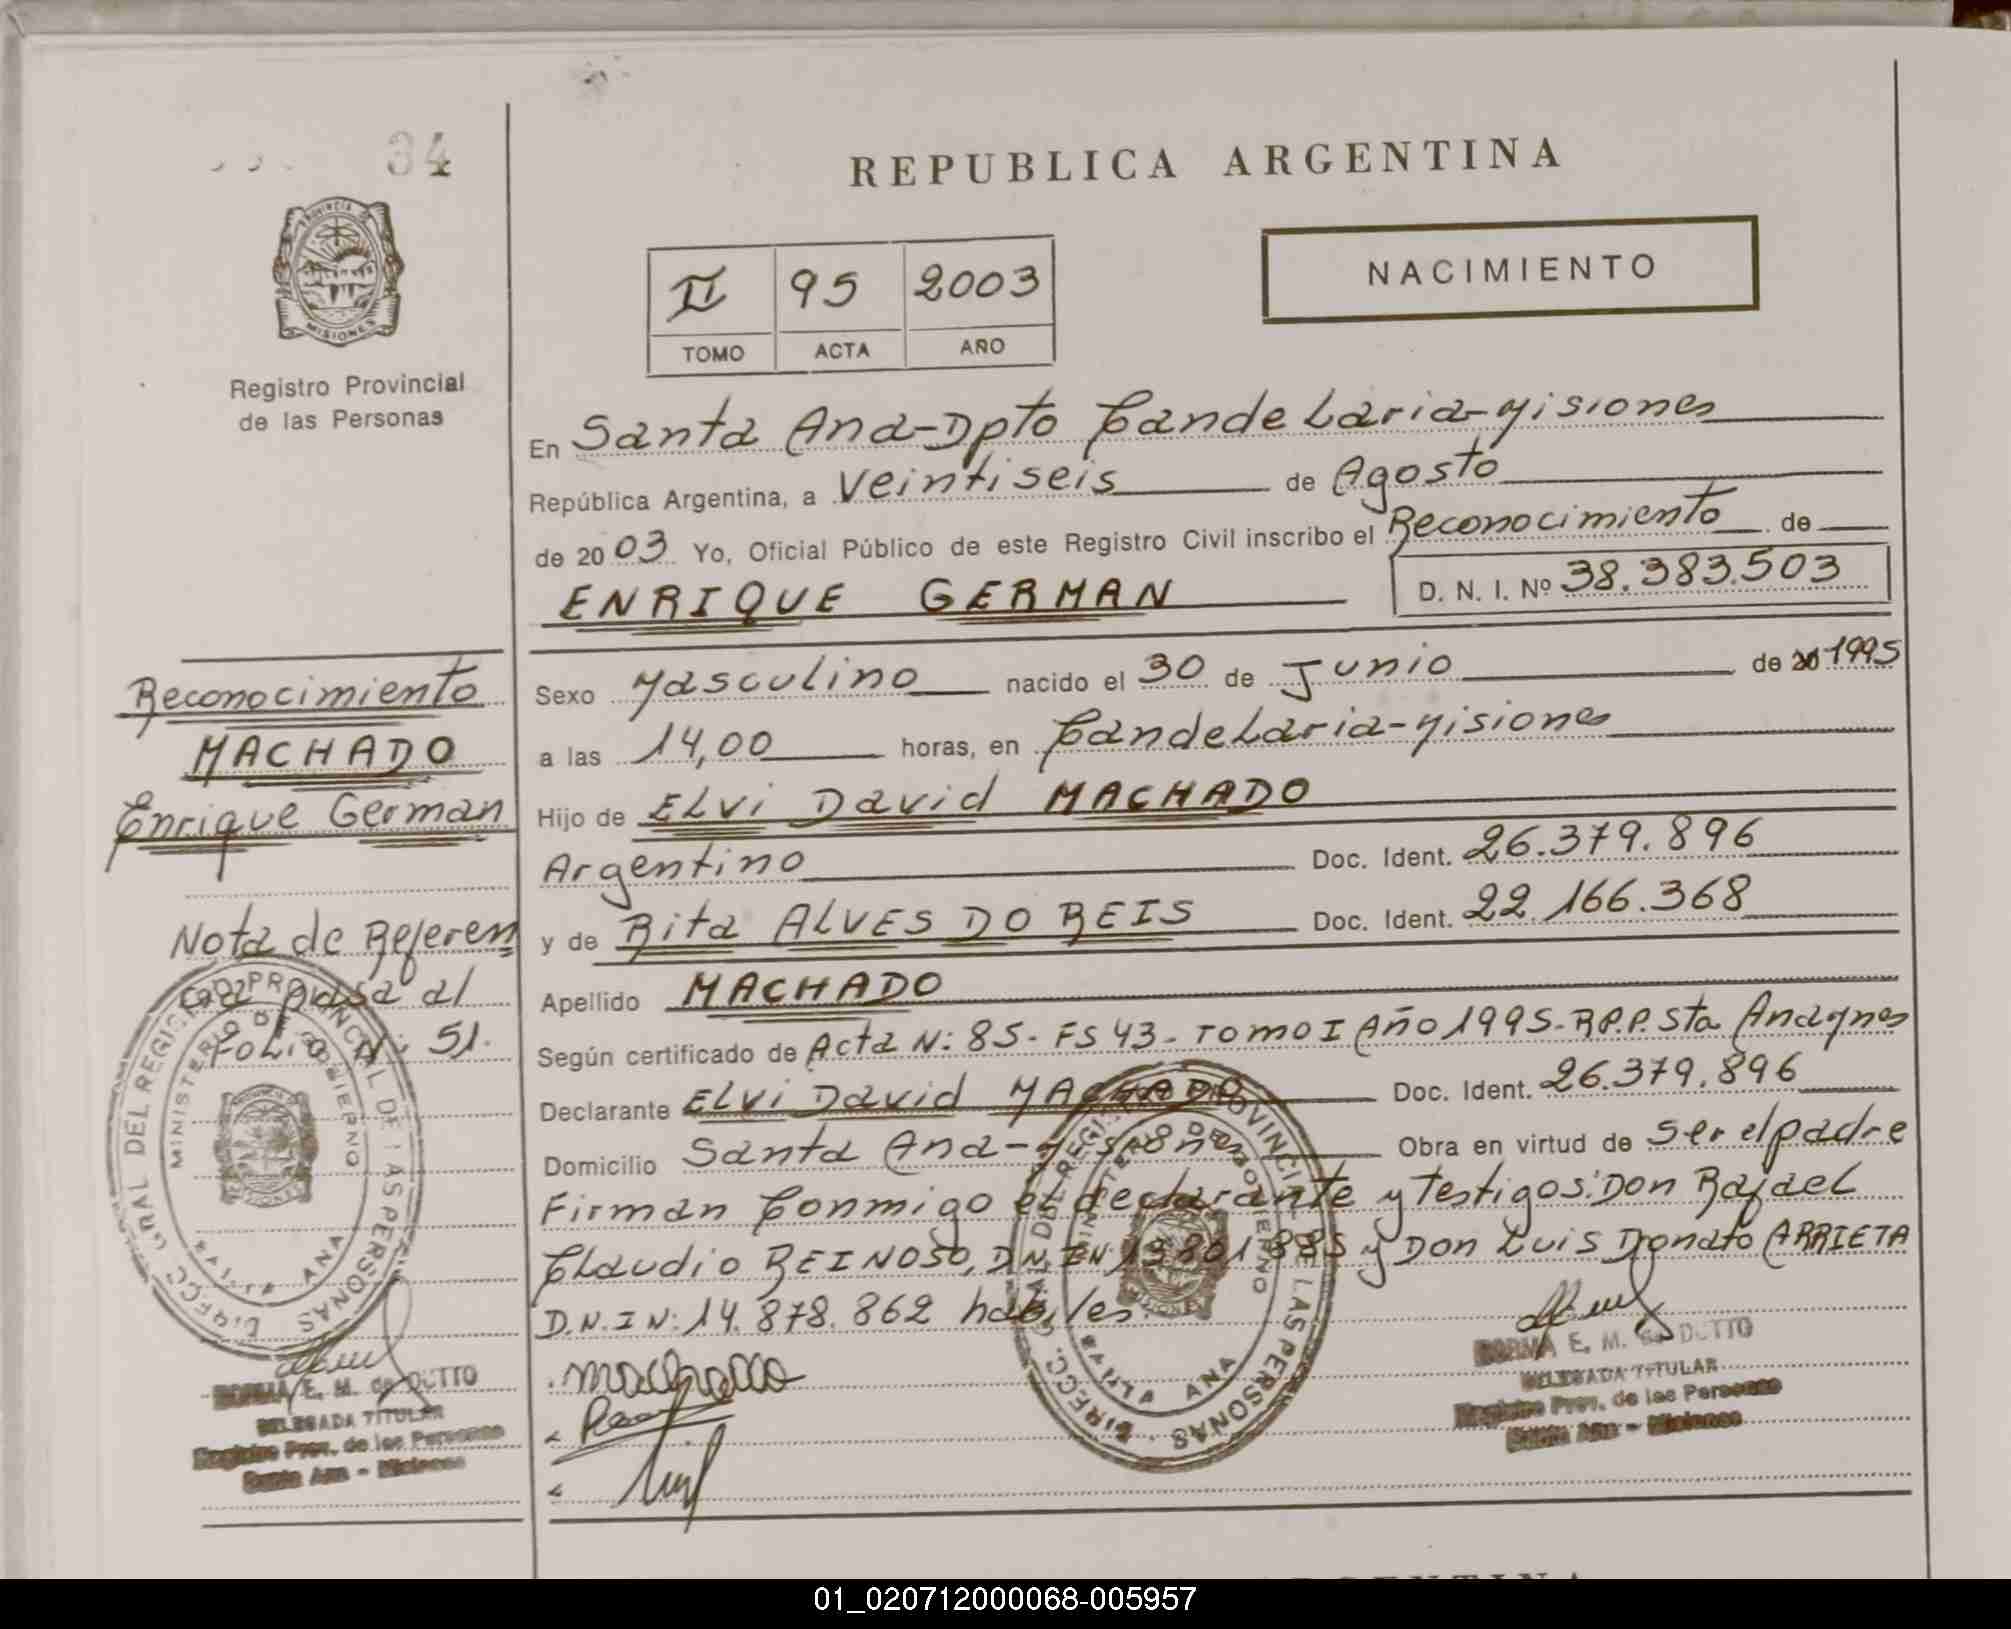 34
PROVINCIA DE
MISIONES
Registro Provincial
de las Personas
REPUBLICA ARGENTINA
II 95 2003
TOMO ACTA AÑO
NACIMIENTO
En Santa Ana-Dpto Candelaria-Misiones
República Argentina, a veintiseis de Agosto
de 2003 Yo, Oficial Público de este Registro Civil inscribo el Reconocimiento de
ENRIQUE GERMAN
D. N. I. Nº 38.383.503
Sexo Masculino nacido el 30 de Junio de 1995
a las 14,00 horas, en Candelaria-Misiones
Hijo de Elvi David MACHADO
Argentino Doc. Ident. 26.379.896
y de Rita ALVES DO REIS Doc. Ident. 22.166.368
Apellido MACHADO
Según certificado de Acta N: 85- FS 43- TOMO I Año 1995- R.P.P. Sta Ana Mnes
Declarante Elvi David MACHADO Doc. Ident. 26.379.896
Domicilio Santa Ana-Misiones Obra en virtud de ser el padre
Firman Conmigo el declarante y Testigos: Don Rafael
Claudio REINOSO, D.N.I N: 13.801.885 y Don Luis Donato ARRIETA
D.N.I N: 14.878.862 habiles.
Machado
Reconocimiento
MACHADO
Enrique German
Nota de Referen
cia pasa al
Folio N: 51.
DIRECC. GRAL DEL REGISTRO PROVINCIAL DE LAS PERSONAS
MINISTERIO DE GOBIERNO
SANTA ANA
NORMA E. M. de DUTTO
DELEGADA TITULAR
Registro Prov. de las Personas
Santa Ana - Misiones
DIRECC. GRAL DEL REGISTRO PROVINCIAL DE LAS PERSONAS
MINISTERIO DE GOBIERNO
SANTA ANA
NORMA E. M. de DUTTO
DELEGADA TITULAR
Registro Prov. de las Personas
Santa Ana - Misiones
01_020712000068-005957